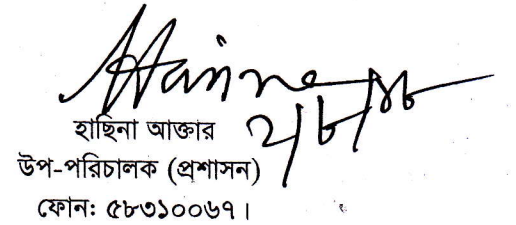 হাছিনা আক্তার
উপ-পরিচালক (প্রশাসন)
ফোন: ৫৮৩১০০৬৭।